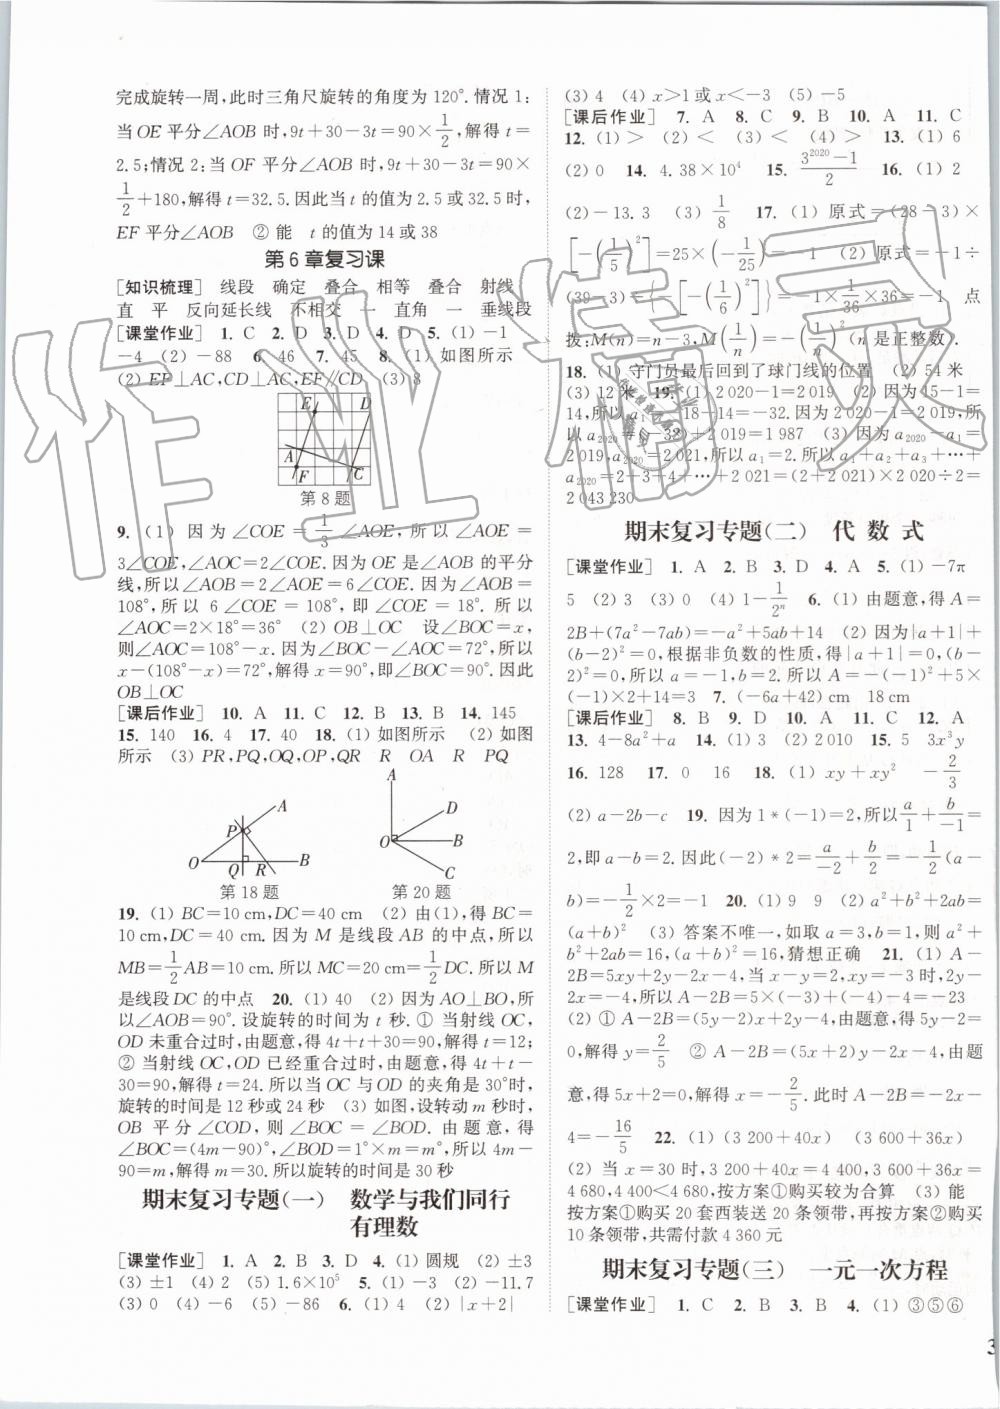 完成旋转一周,此时三角尺旋转的角度为120°.情况1:
当OE平分∠AOB时,9t+30-3t=90×1/2,解得t=
2.5;情况2:当OF平分∠AOB时,9t+30-3t=90×
1/2+180,解得t=32.5.因此当t的值为2.5或32.5时,
EF平分∠AOB ②能 t的值为14或38
第6章复习课
[知识梳理] 线段 确定 叠合 相等 叠合 射线
直 平 反向延长线 不相交 一 直角 一 垂线段
[课堂作业] 1. C 2. D 3. D 4. D 5. (1)-1
-4 (2)-88 6. 46 7. 45 8. (1)如图所示
(2)EF⊥AC,CD⊥AC,EF∥CD (3)8
E D
A
F C
第8题
9. (1)因为∠COE=1/3∠AOE,所以∠AOE=
3∠COE,∠AOC=2∠COE.因为OE是∠AOB的平分
线,所以∠AOB=2∠AOE=6∠COE.因为∠AOB=
108°,所以6∠COE=108°,即∠COE=18°.所以
∠AOC=2×18°=36° (2)OB⊥OC 设∠BOC=x,
则∠AOC=108°-x.因为∠BOC-∠AOC=72°,所以
x-(108°-x)=72°,解得x=90°,即∠BOC=90°.因此
OB⊥OC
[课后作业] 10. A 11. C 12. B 13. B 14. 145
15. 140 16. 4 17. 40 18. (1)如图所示 (2)如图
所示 (3)PR,PQ,OQ,OP,PQ,PR OA R PQ
A
P
O Q R B
第18题
A
D
O B
C
第20题
19. (1)BC=10 cm,DC=40 cm (2)由(1),得BC=
10 cm,DC=40 cm.因为M是线段AB的中点,所以
MB=1/2AB=10 cm.所以MC=20 cm=1/2DC.所以M
是线段DC的中点 20. (1)40 (2)因为AO⊥BO,所
以∠AOB=90°.设旋转的时间为t秒.①当射线OC,
OD未重合过时,由题意,得4t+t+30=90,解得t=12;
②当射线OC,OD已经重合过时,由题意,得4t+t-
30=90,解得t=24.所以当OC与OD的夹角是30°时,
旋转的时间是12秒或24秒 (3)如图,设转动m秒时,
OB平分∠COD,则∠BOC=∠BOD.由题意,得
∠BOC=(4m-90)°,∠BOD=1°×m=m°,所以4m-
90=m,解得m=30.所以旋转的时间是30秒
期末复习专题(一) 数学与我们同行
有理数
[课堂作业] 1. A 2. B 3. D 4. (1)圆规 (2)±3
(3)±1 (4)-2 (5)1.6×10⁵ 5. (1)-3 (2)-11.7
(3)0 (4)-6 (5)-86 6. (1)4 (2)|x+2|
(3)4 (4)x>1或x<-3 (5)-5
[课后作业] 7. A 8. C 9. B 10. A 11. C
12. (1)> (2)< (3)< (4)> 13. (1)6
(2)0 14. 4.38×10⁴ 15. (3²⁰²⁰-1)/2 16. (1)2
(2)-13.3 (3)1/8 17. (1)原式=(28-3)×
[-(1/5)²]=25×(-1/25)=-1 (2)原式=-1÷
(39-3)={-[-(1/6)²]}=-1×1/36×36=-1 点
拨:M(n)=n-3,M(1/n)=-(1/n)²(n是正整数).
18. (1)守门员最后回到了球门线的位置 (2)54米
(3)12米 19. (1)2 020-1=2019 (2)因为45-1=
14,所以a₁=-18-14=-32.因为2 020-1=2 019,所
以a₂₀₂₀=(-32)+2019=1 987 (3)因为a₂₀₂₀-a₁=
2 019,a₂₀₂₀=2 021,所以a₁=2.所以a₁+a₂+a₃+…+
a₂₀₂₀=2+3+4+5+…+2 021=(2+2 021)×2 020÷2=
2 043 230
期末复习专题(二) 代数式
[课堂作业] 1. A 2. B 3. D 4. A 5. (1)-7π
5 (2)3 (3)0 (4)1-1/2ⁿ 6. (1)由题意,得A=
2B+(7a²-7ab)=-a²+5ab+14 (2)因为|a+1|+
(b-2)²=0,根据非负数的性质,得|a+1|=0,(b-
2)²=0,所以a=-1,b=2.所以A=-(-1)²+5×
(-1)×2+14=3 7. (-6a+42)cm 18 cm
[课后作业] 8. B 9. D 10. A 11. C 12. A
13. 4-8a²+a 14. (1)3 (2)2 010 15. 5 3x³y
16. 128 17. 0 16 18. (1)xy+xy² -2/3
(2)a-2b-c 19. 因为1*(-1)=2,所以a/1+b/-1=
2,即a-b=2.因此(-2)*2=a/-2+b/2=-1/2(a-
b)=-1/2×2=-1 20. (1)9 9 (2)a²+b²+2ab=
(a+b)² (3)答案不唯一,如取a=3,b=1,则a²+
b²+2ab=16,(a+b)²=16,猜想正确 21. (1)A-
2B=5xy+2y-2x-4,当x-y=2,xy=-3时,2y-
2x=-4,所以A-2B=5×(-3)+(-4)-4=-23
(2)①A-2B=(5y-2)x+2y-4,由题意,得5y-2=
0,解得y=2/5 ②A-2B=(5x+2)y-2x-4,由题
意,得5x+2=0,解得x=-2/5.此时A-2B=-2x-
4=-16/5 22. (1)(3 200+40x) (3 600+36x)
(2)当x=30时,3 200+40x=4 400,3 600+36x=
4 680,4 400<4 680,按方案①购买较为合算 (3)能
按方案①购买20套西装送20条领带,再按方案②购买
10条领带,共需付款4 360元
期末复习专题(三) 一元一次方程
[课堂作业] 1. C 2. B 3. B 4. (1)③⑤⑥
3
作业精灵